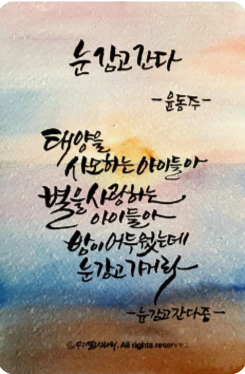 눈 감고 간다
-윤동주-
태양을
사모하는 아이들아
별을 사랑하는
아이들아
밤이 어두웠는데
눈 감고 가거라
-눈 감고 간다 중-
All rights reserved.